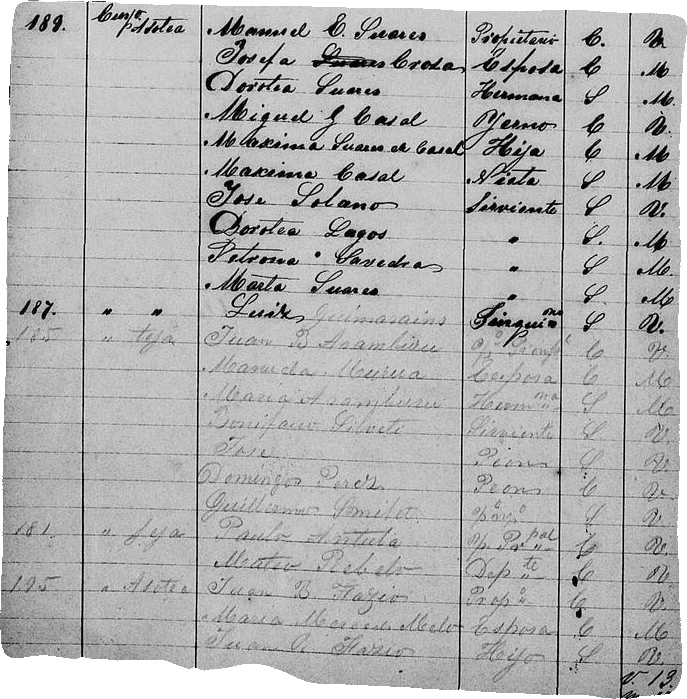 189. Cuerpo Azotea Manuel C. Suares Propietario C. V.
Josefa Suares Crosa Esposa C M
Dorotea Suares Hermana S M.
Miguel G Casal Yerno C V.
Maxima Suares de Casal Hija C M
Maxima Casal Nieta S M
Jose Solano Sirviente S V.
Dorotea Lagos " S. M
Petrona Savedra " S M.
Marta Suares " S M
187. " " Luis Guimarains S V.
185 " teja Juan B Aramburu C V.
Manuela Murua Esposa C M
Maria Aramburu Herm na S M
Bonifacio Sirviente S V.
Jose Peon S V.
Domingo Perez Peon C V.
Guillermo S V.
181. " teja Paulo C V.
Mateo Rebelo Dep te C V.
195 " Azotea Juan B. Prop o C V.
Maria Mercedes Melo Esposa C M
Juan Hijo S. V.
V. 13.